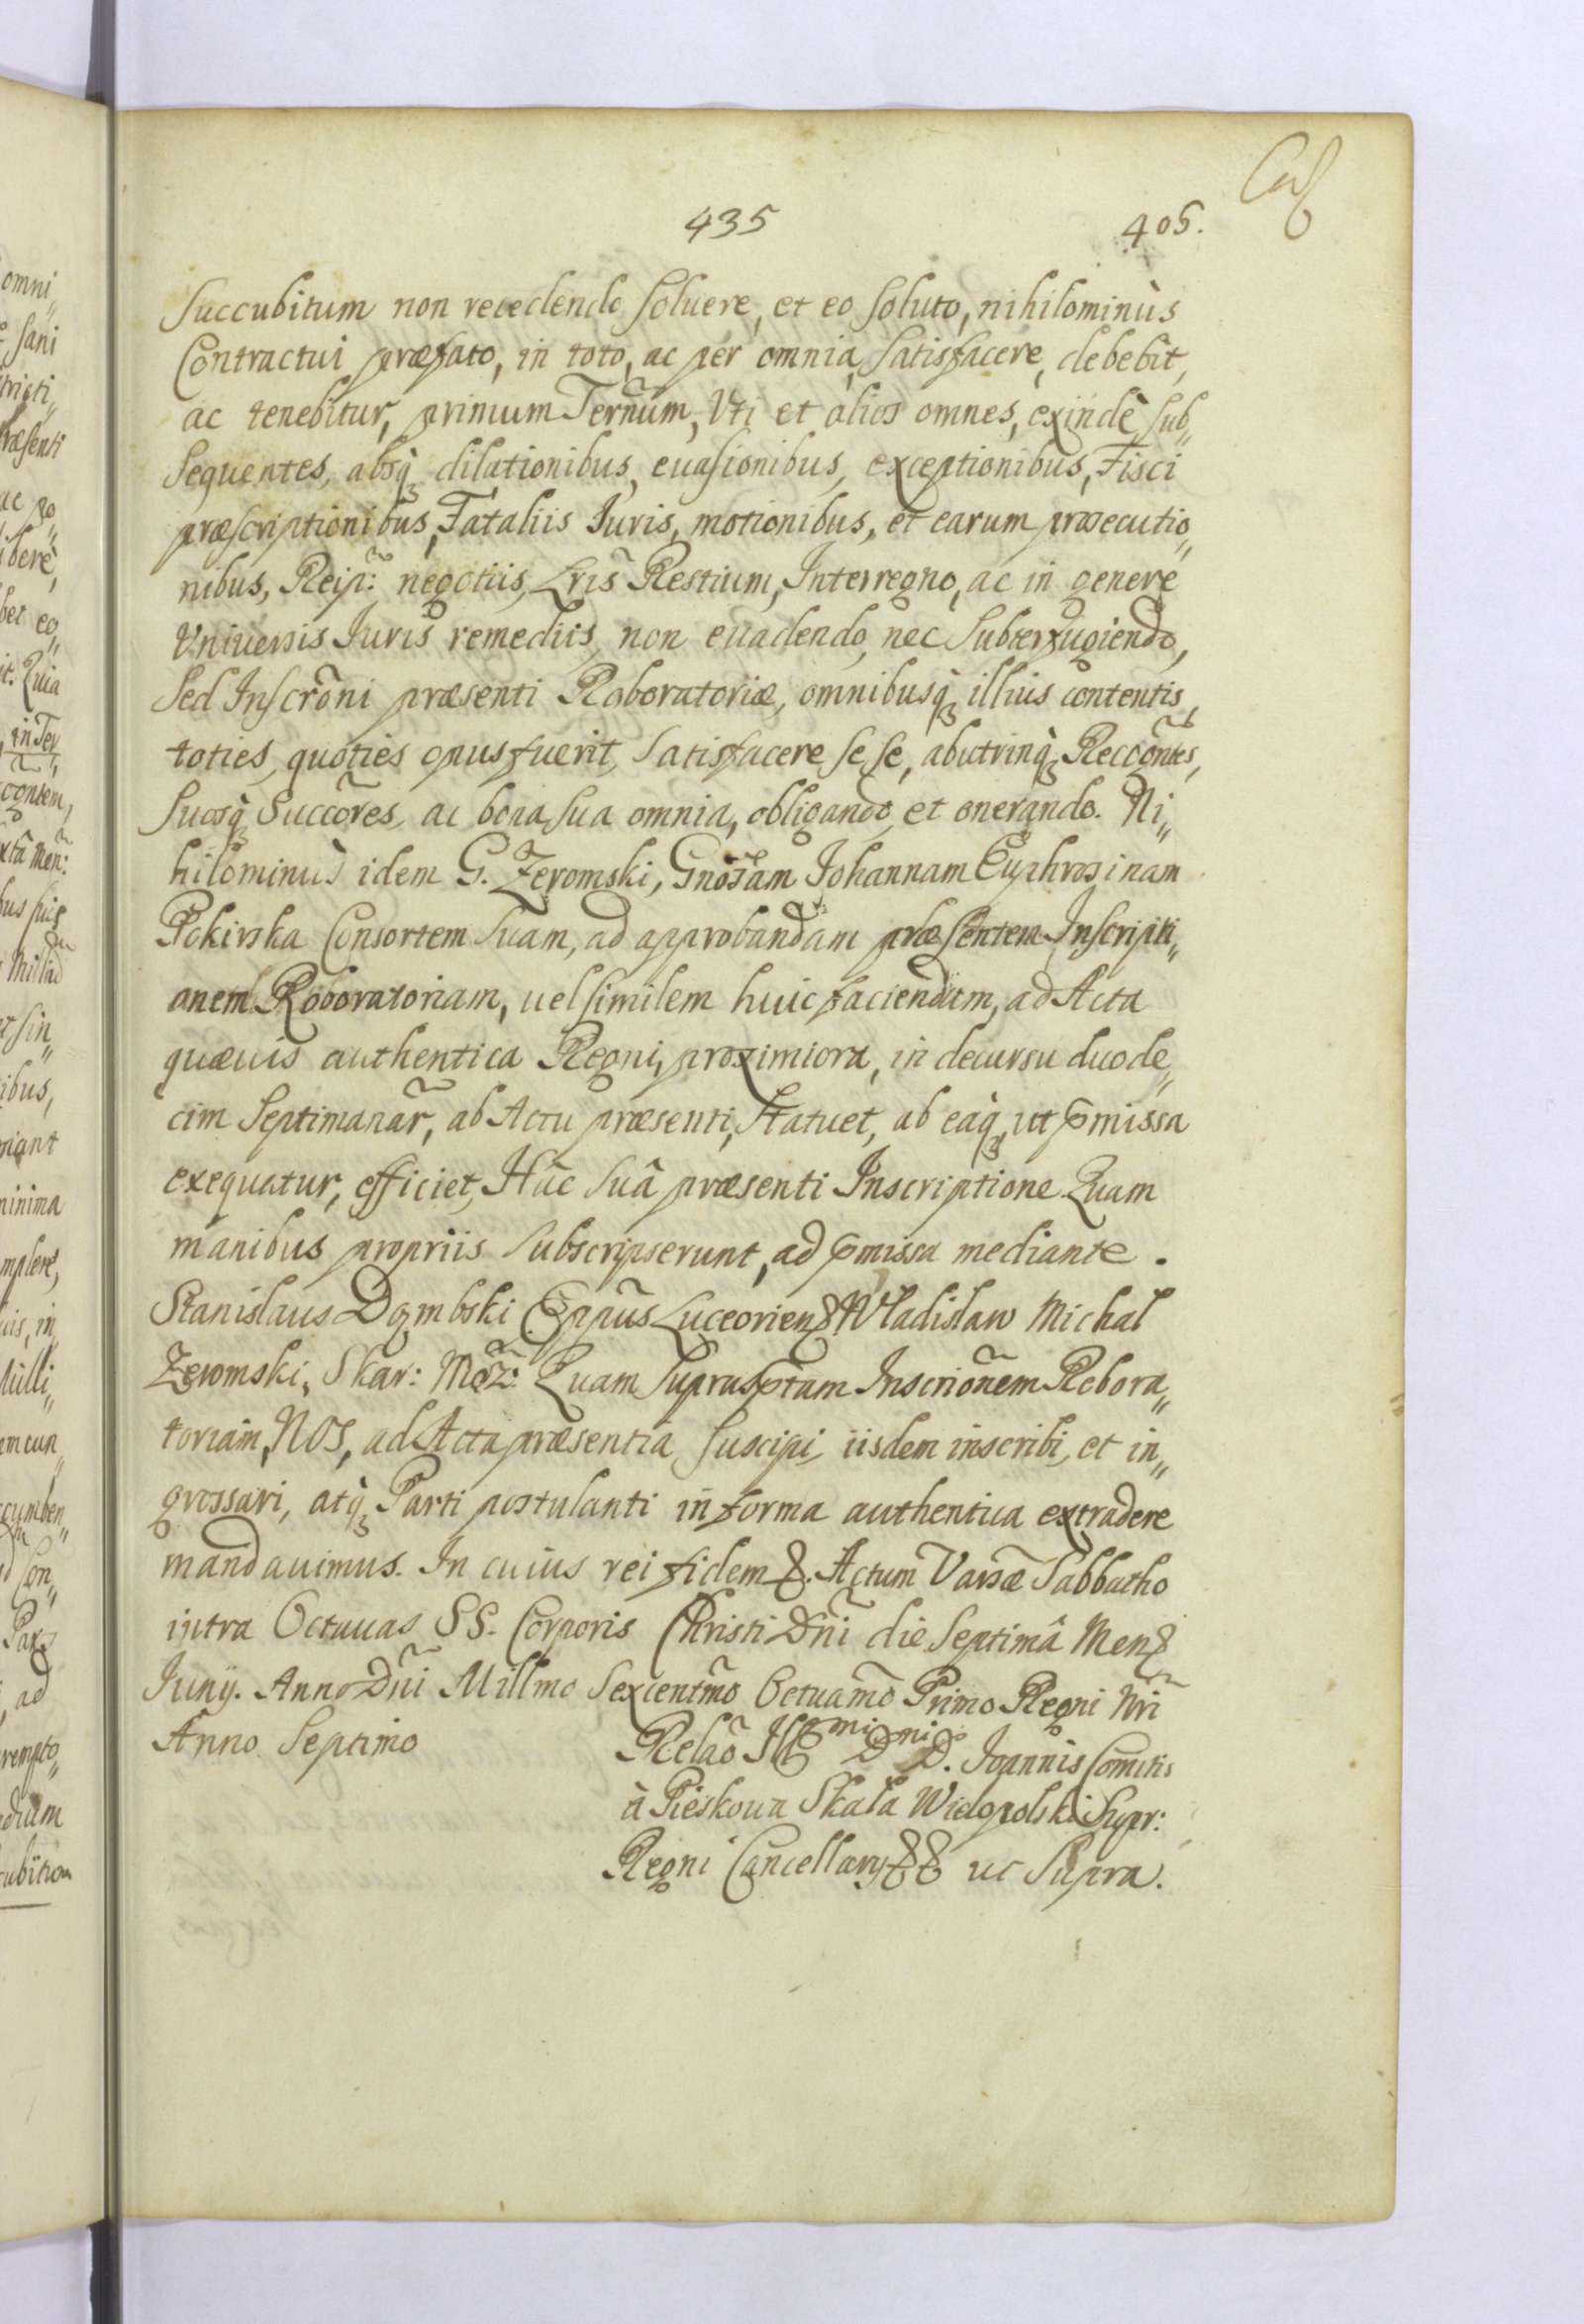 435
405.
Succubitum non recedendo soluere, et eo soluto, nihilominùs
Contractui præfato, in toto, ac per omnia, satisfacere, debebit,
ac tenebitur, primum Termũm, Vti et alios omnes, exindè sub„
sequentes, absq; dilationibus, euasionibus, exceptionibus, Fisci
præscriptionibus, Fataliis Iuris, motionibus, et earum prosecutio„
nibus, Reip: negotiis, Lris Restium, Interregno, ac in genere
Vniuersis Iuris remediis, non euadendo, nec subterfugiendo,
sed Inscrõni præsenti Roboratoriæ, omnibusq; illius contentis,
toties, quoties opus fuerit, satisfacere sese, abutrinq; Reccõntes,
suosq; Succõres, ac bona sua omnia, obligando, et onerando. Ni„
hilominus idem G. Zeromski, Gnõsam Johannam Euphrosinam
Pokirska Consortem suam, ad approbandam præsentem Inscripti„
onem Roboratoriam, uel similem huic faciendam, ad Acta
quæuis authentica Regni, proximiora, in decursu duode„
cim septimanar̃, ab Actu præsenti, statuet, ab eaq; ut p̃missa
exequatur, efficiet, Hâc suâ præsenti Inscriptione. Quam
manibus propriis subscripserunt, ad p̃missa mediante.
Stanislaus Dąmbski Eppũs Luceorien͛ Władisław Michał
Zeromski, Skar: Moz: Quam suprasptam Inscriõnem Robora„
toriam, NOS, ad Acta præsentia suscipi, iisdem inscribi, et in„
grossari, atq; Parti postulanti in forma authentica extradere
mandauimus. In cuius rei fidem &. Actum Varsæ Sabbatho
intra Octauas SS. Corporis Christi Dñi die Septimâ Mens
Iunij. Anno Dñi Millmo Sexcentmõ Octuamõ Primo Regni Nri
Anno Septimo
Relaõ Illmi Dni D. Joannis Comitis
à Pieskoua Skała Wielopolski Supr:
Regni Cancellarij && ut supra.